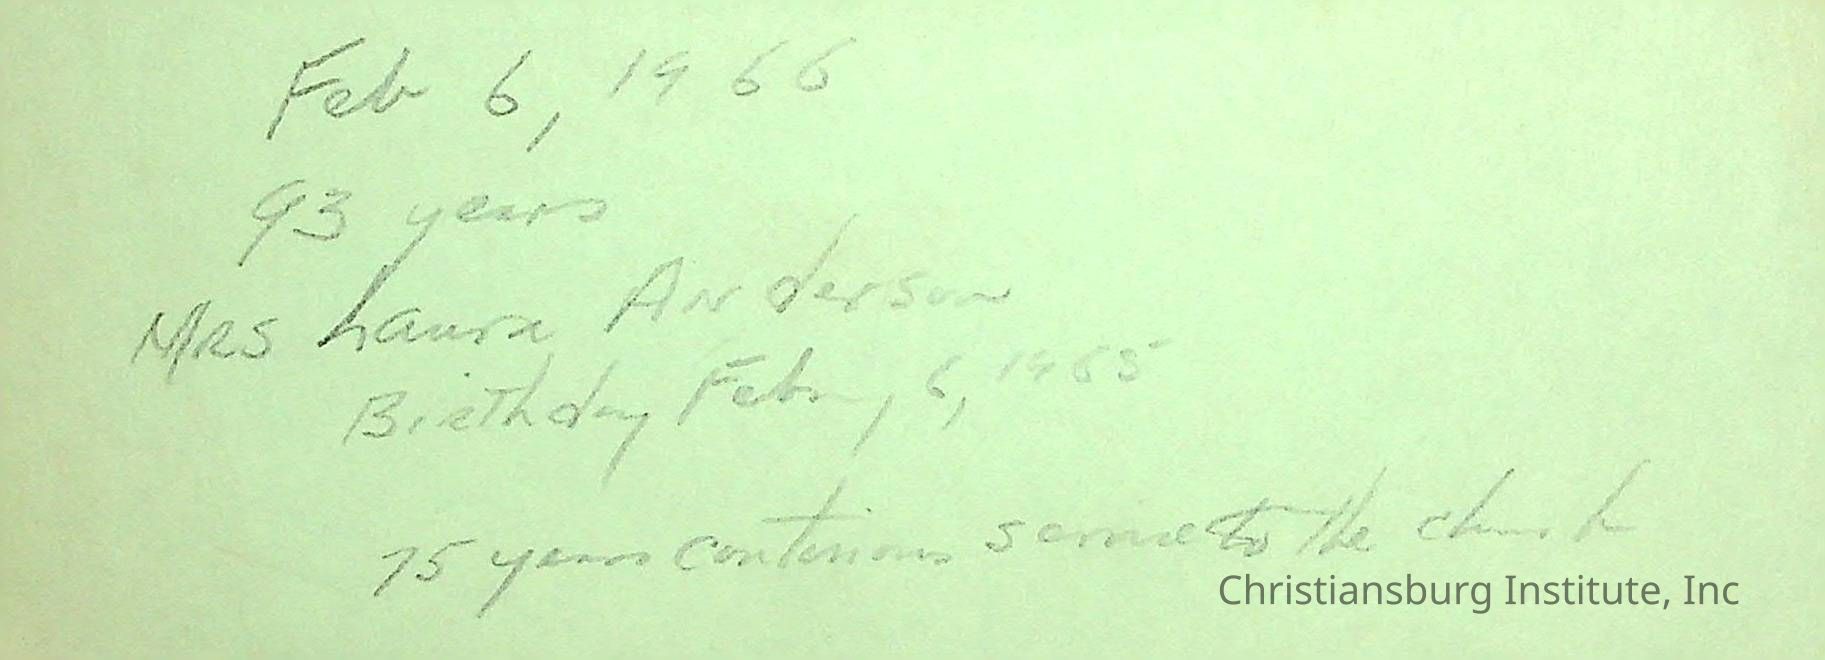 Feb 6, 1966
93 years
MRS Laura Anderson
Birthday Feb, 6, 1965
75 years continious service to the church
Christiansburg Institute, Inc